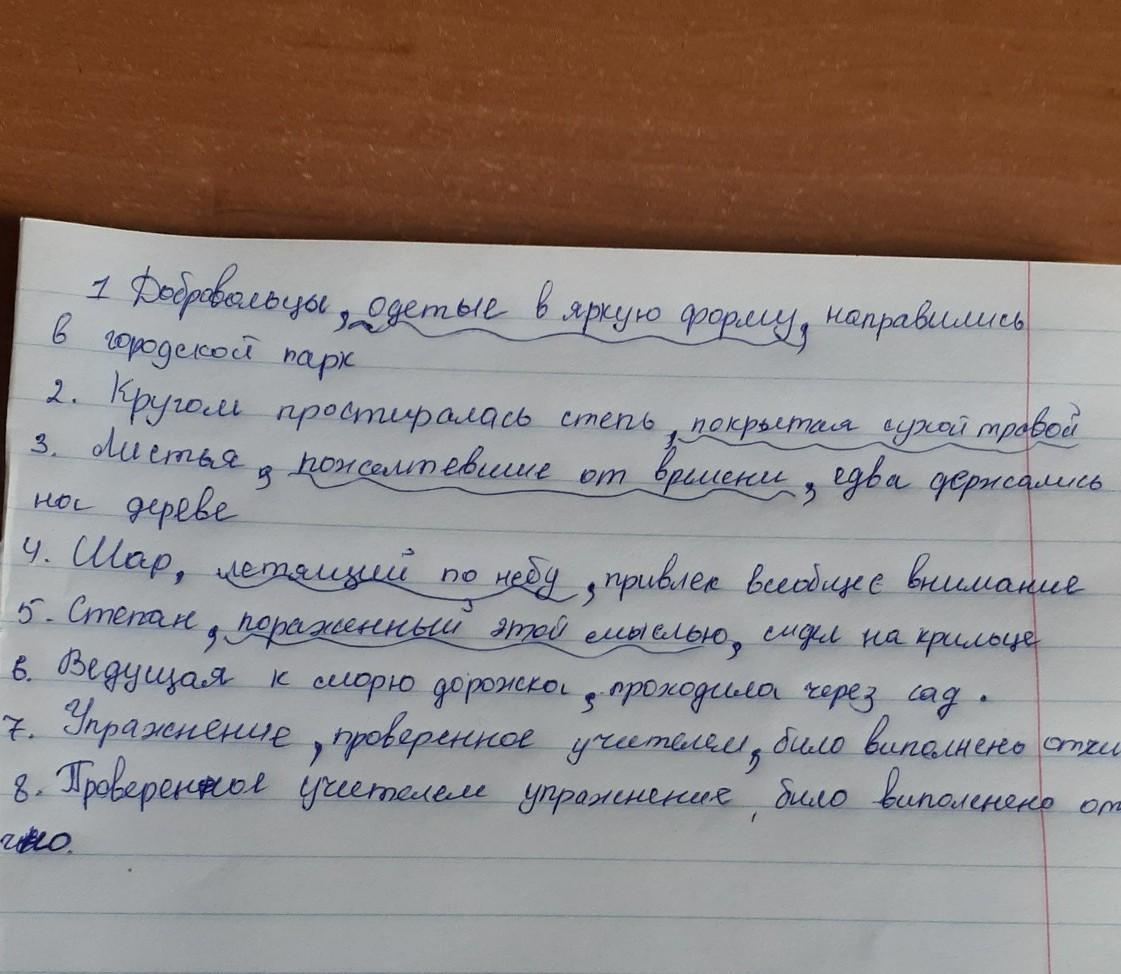 1 Добровольцы, одетые в яркую форму, направились
в городской парк
2. Кругом простиралась степь, покрытая сухой травой
3. Листья, пожелтевшие от времени, едва держались
на дереве
4. Шар, летящий по небу, привлек всеобщее внимание
5. Степан, пораженный этой мыслью, сидел на крильце
6. Ведущая к морю дорожка, проходила через сад.
7. Упражнение, проверенное учителем, било виполнено отли
8. Проверенное учителем упражнение, било виполнено от
чно.